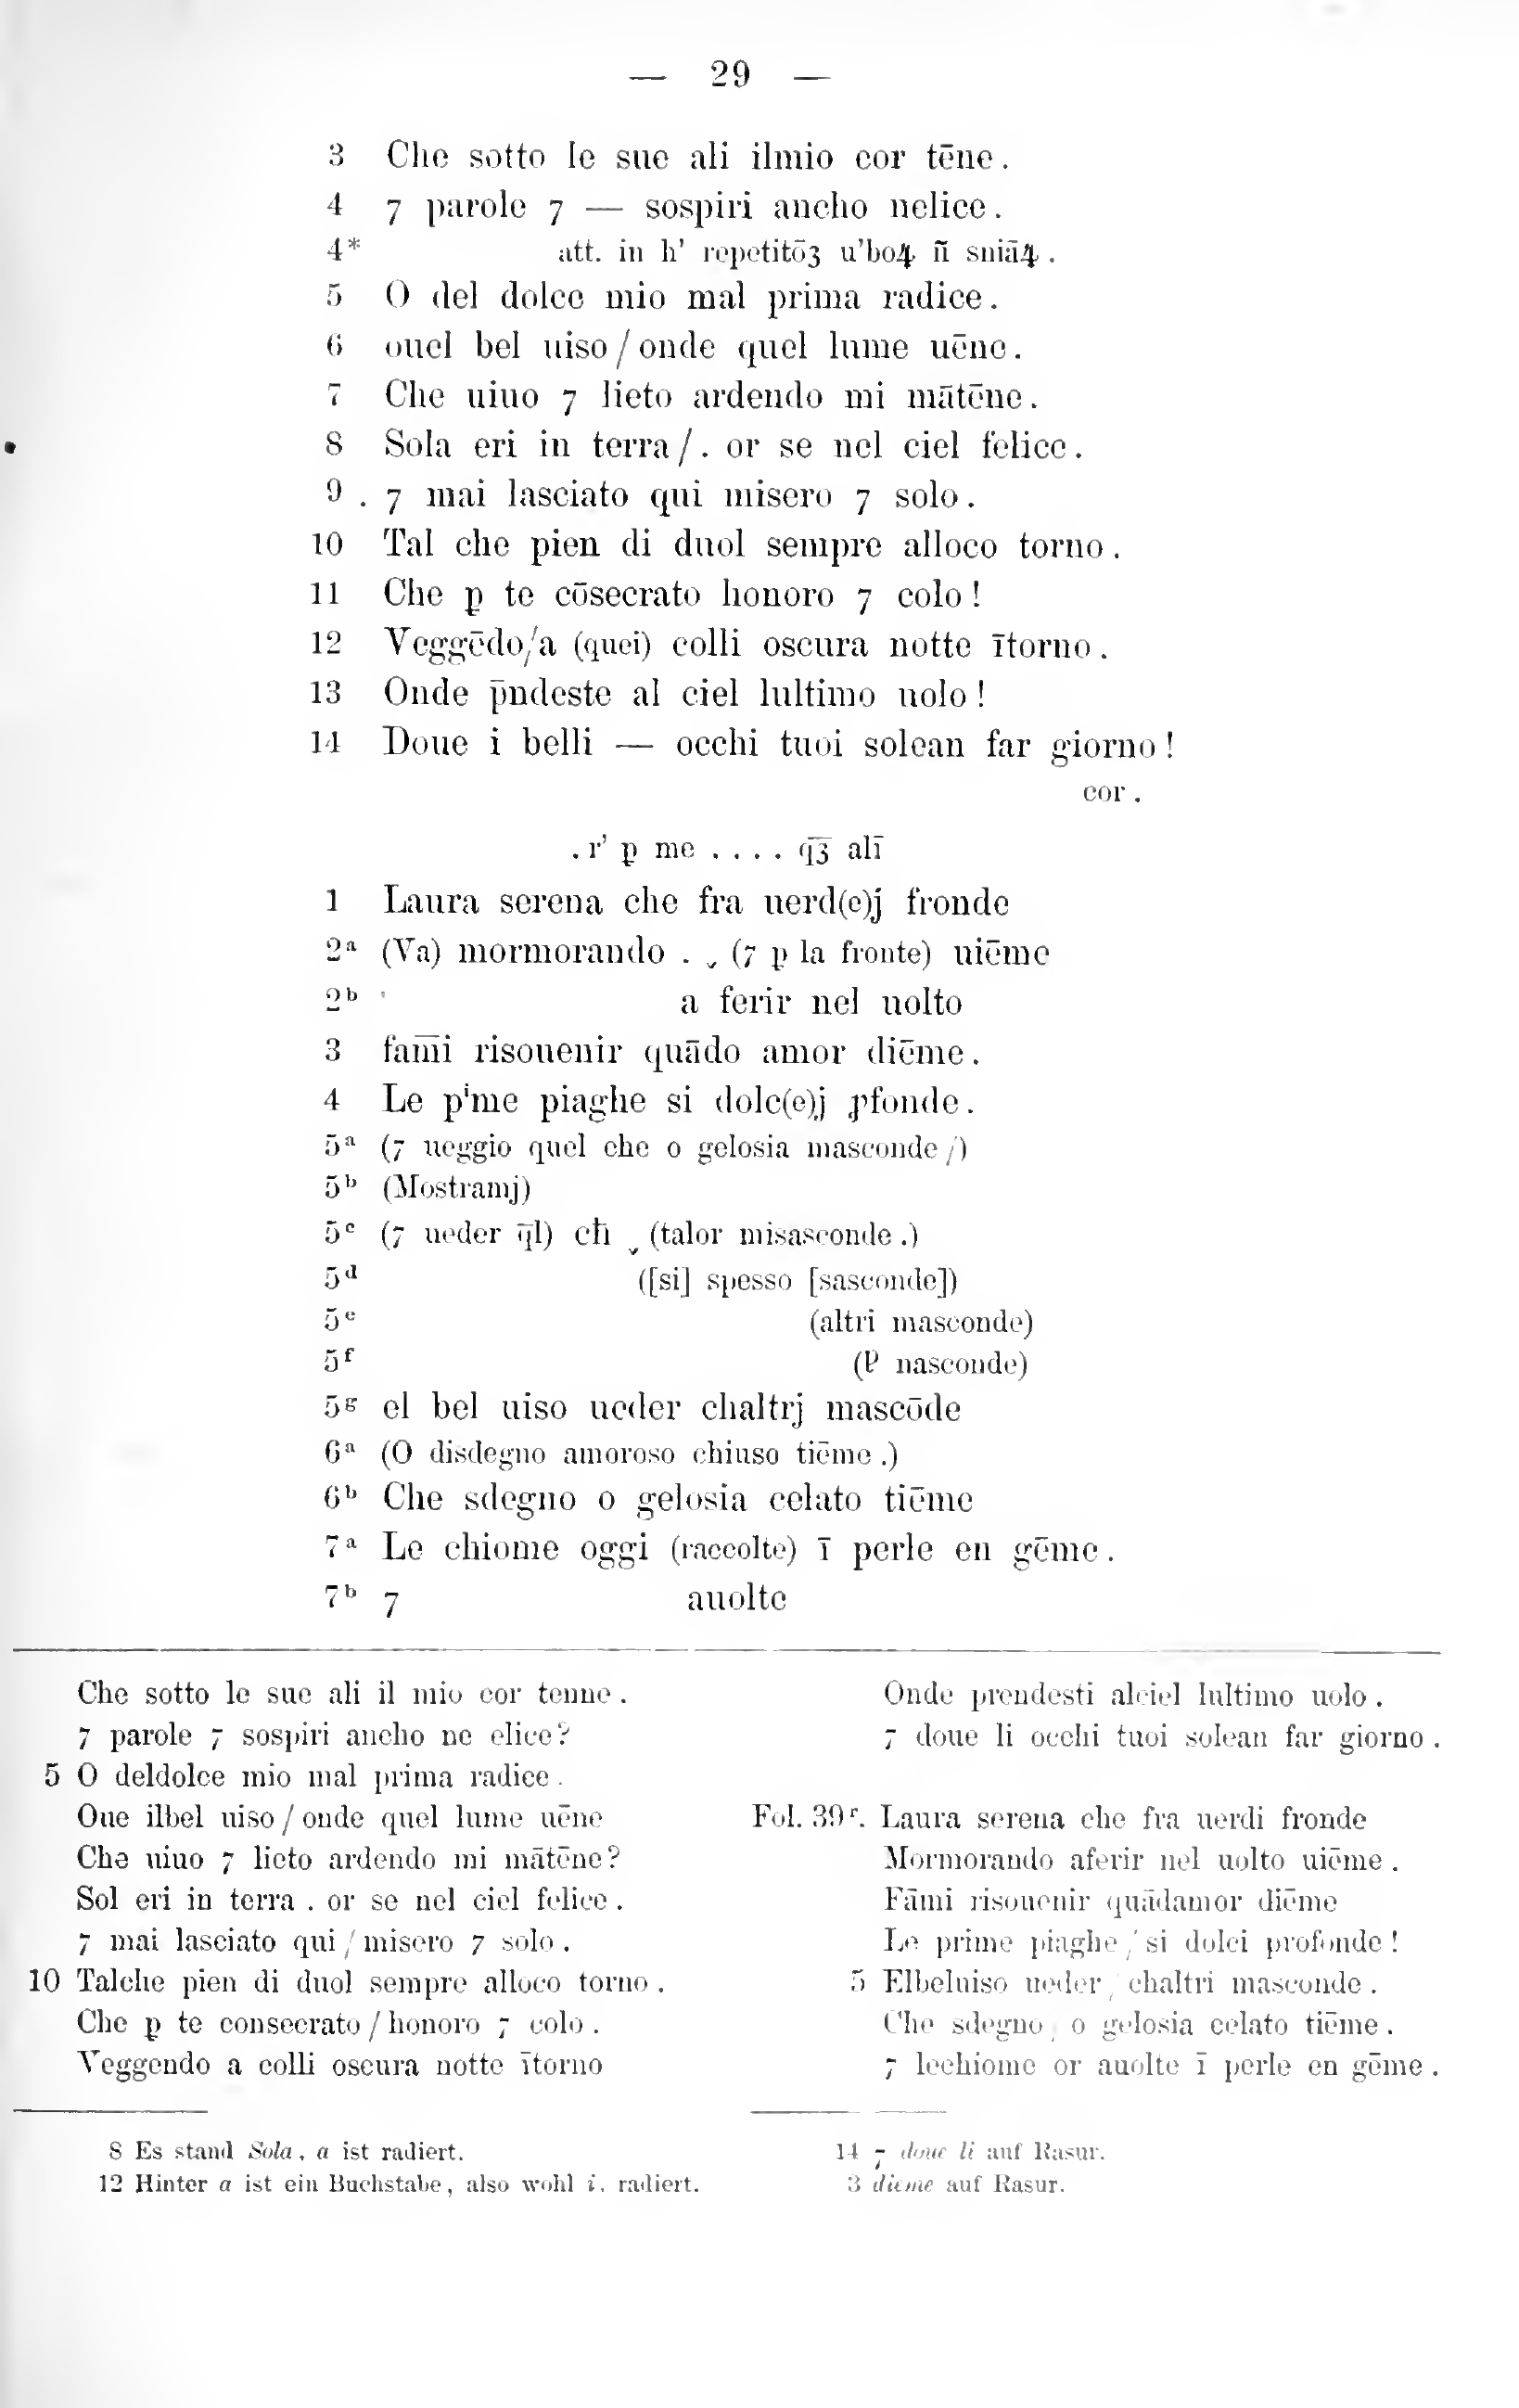 — 29 —
3 Che sotto le sue ali ilmio cor tēne.
4 ⁊ parole ⁊ — sospiri ancho nelice.
4* att. in h' repetitōꝫ u'boꝝ ñ sniāꝝ.
5 O del dolce mio mal prima radice.
6 ouel bel uiso/onde quel lume uēne.
7 Che uiuo ⁊ lieto ardendo mi mātēne.
8 Sola eri in terra/. or se nel ciel felice.
9 . ⁊ mai lasciato qui misero ⁊ solo.
10 Tal che pien di duol sempre alloco torno.
11 Che ꝑ te cōsecrato honoro ⁊ colo!
12 Veggēdo/a (quei) colli oscura notte ītorno.
13 Onde p̄ndeste al ciel lultimo uolo!
14 Doue i belli — occhi tuoi solean far giorno!
cor.
. r' ꝑ me . . . . q̄ꝫ alī
1 Laura serena che fra uerd(e)j fronde
2ᵃ (Va) mormorando . ˬ (⁊ ꝑ la fronte) uiēme
2ᵇ ' a ferir nel uolto
3 fam̄i risouenir quādo amor diēme.
4 Le pⁱme piaghe si dolc(e)j ꝓfonde.
5ᵃ (⁊ ueggio quel che o gelosia masconde/)
5ᵇ (Mostramj)
5ᶜ (⁊ ueder q̄l) cħ ˬ (talor misasconde.)
5ᵈ ([si] spesso [sasconde])
5ᵉ (altri masconde)
5ᶠ (nasconde)
5ᵍ el bel uiso ueder chaltrj mascōde
6ᵃ (O disdegno amoroso chiuso tiēme.)
6ᵇ Che sdegno o gelosia celato tiēme
7ᵃ Le chiome oggi (raccolte) ī perle en gēme.
7ᵇ ⁊ auolte
Che sotto le sue ali il mio cor tenne.
⁊ parole ⁊ sospiri ancho ne elice?
5 O deldolce mio mal prima radice.
Oue ilbel uiso/onde quel lume uēne
Che uiuo ⁊ lieto ardendo mi mātēne?
Sol eri in terra. or se nel ciel felice.
⁊ mai lasciato qui/misero ⁊ solo.
10 Talche pien di duol sempre alloco torno.
Che ꝑ te consecrato/honoro ⁊ colo.
Veggendo a colli oscura notte ītorno
8 Es stand Sola, a ist radiert.
12 Hinter a ist ein Buchstabe, also wohl i, radiert.
Onde prendesti alciel lultimo uolo.
⁊ doue li occhi tuoi solean far giorno.
Fol. 39ʳ. Laura serena che fra uerdi fronde
Mormorando aferir nel uolto uiēme.
Fāmi risouenir quādamor diēme
Le prime piaghe/si dolci profonde!
5 Elbeluiso ueder/chaltri masconde.
Che sdegno/o gelosia celato tiēme.
⁊ lechiome or auolte ī perle en gēme.
14 ⁊ doue li auf Rasur.
3 dieme auf Rasur.